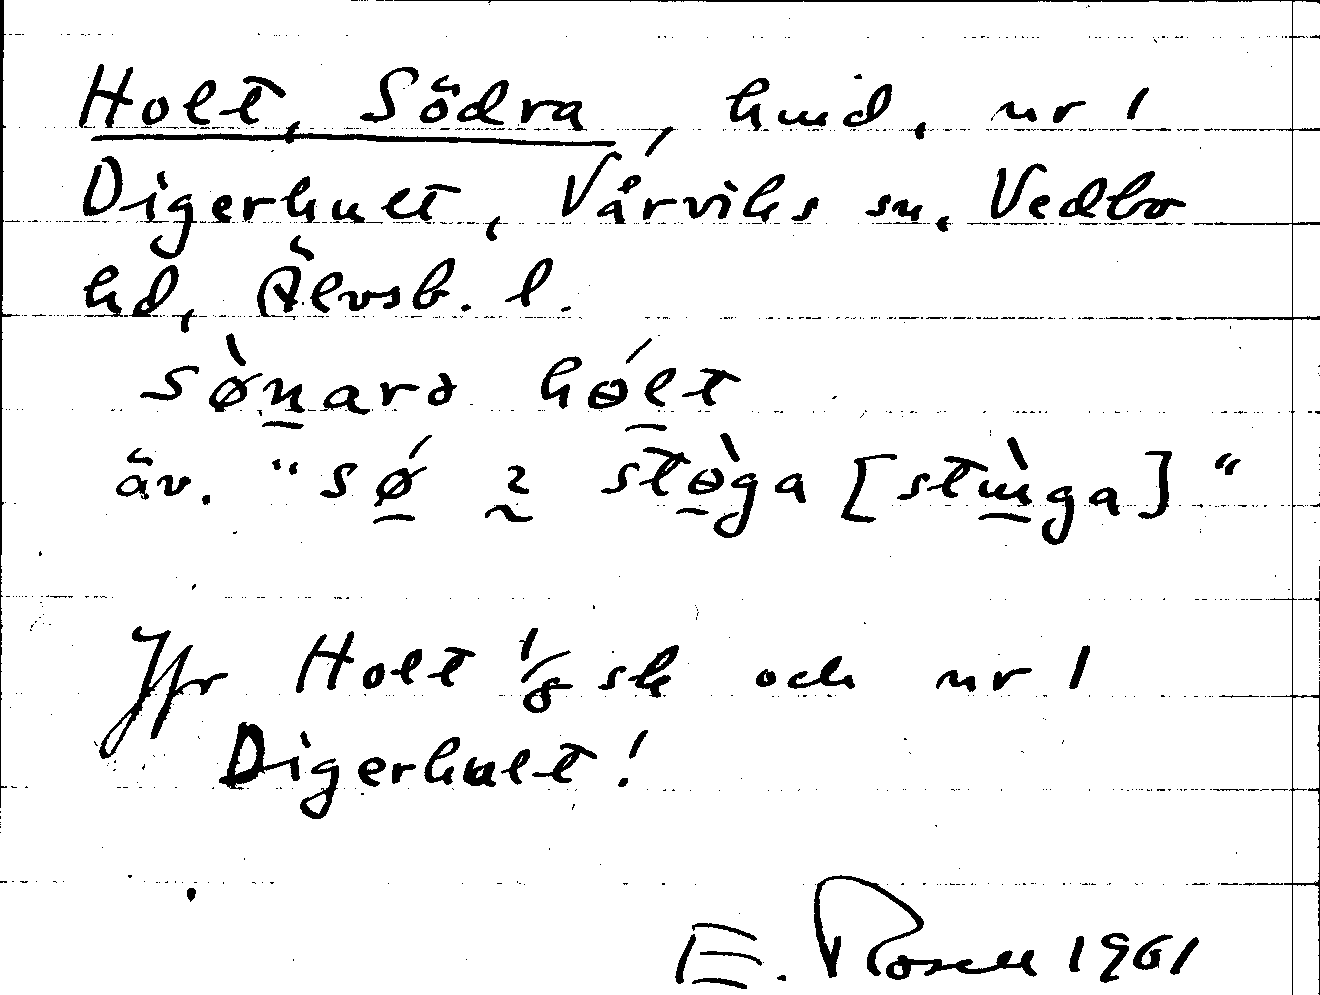 Holt, Södra, hmd, nr 1
Digerhult, Vårviks sn, Vedbo
hd, Älvsb. l.
sø̀narə hɵ́lt
äv. "sǿ 2 stɵ̀ga [stɯ̀ga]"
Jfr Holt 1/8 sk och nr 1
Digerhult!
E. Rosell 1961